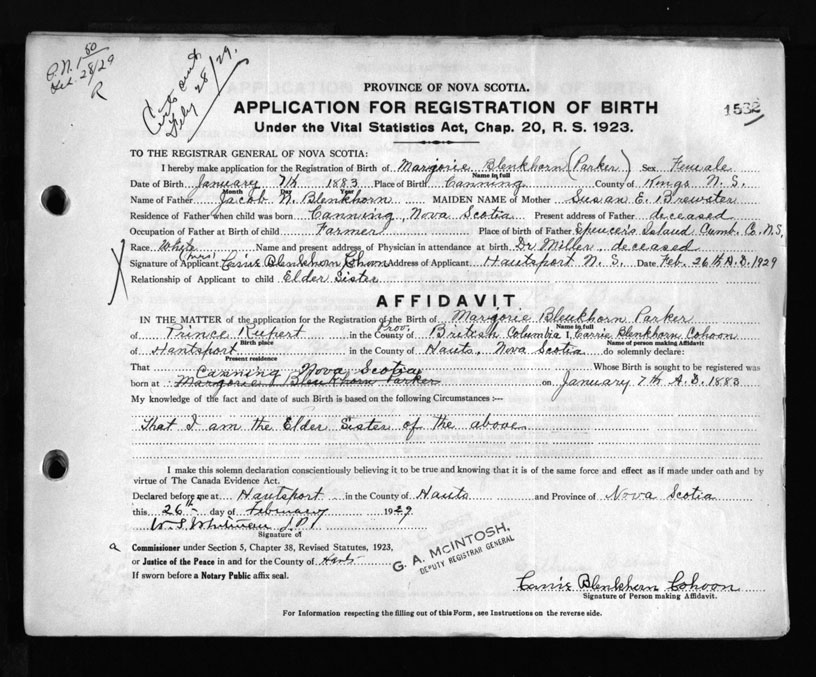 P.N. 1.50
Feb. 28/29
R
Certs sent
Feby 28/29.
PROVINCE OF NOVA SCOTIA.
APPLICATION FOR REGISTRATION OF BIRTH
1532
Under the Vital Statistics Act, Chap. 20, R. S. 1923.
TO THE REGISTRAR GENERAL OF NOVA SCOTIA:
I hereby make application for the Registration of Birth of Marjorie Blenkhorn (Parker) Sex Female
Name in full
Date of Birth January 7th 1883 Place of Birth Canning County of Kings N. S.
Month Day Year
Name of Father Jacob N. Blenkhorn MAIDEN NAME of Mother Susan E. Brewster
Residence of Father when child was born Canning, Nova Scotia Present address of Father deceased
Occupation of Father at Birth of child Farmer Place of birth of Father Spencer's Island Cumb. Co. N.S.
Race White Name and present address of Physician in attendance at birth Dr Miller, deceased
Signature of Applicant (Mrs) Carrie Blenkhorn Cohoon Address of Applicant Hantsport N. S. Date Feb. 26th A.D. 1929
Relationship of Applicant to child Elder Sister
AFFIDAVIT
IN THE MATTER of the application for the Registration of the Birth of Marjorie Blenkhorn Parker
Name in full
of Prince Rupert in the County of Prov. British Columbia I, Carrie Blenkhorn Cohoon
Birth place Name of person making Affidavit
of Hantsport in the County of Hants, Nova Scotia do solemnly declare:
Present residence
That Canning Nova Scotia Whose Birth is sought to be registered was
born at Marjorie Blenkhorn Parker on January 7th A.D. 1883
My knowledge of the fact and date of such Birth is based on the following Circumstances :—
That I am the Elder Sister of the above
I make this solemn declaration conscientiously believing it to be true and knowing that it is of the same force and effect as if made under oath and by
virtue of The Canada Evidence Act.
Declared before me at Hantsport in the County of Hants and Province of Nova Scotia
this 26th day of February 1929
W. S. Whitman J.P.
Signature of
a Commissioner under Section 5, Chapter 38, Revised Statutes, 1923,
or Justice of the Peace in and for the County of Hants
If sworn before a Notary Public affix seal.
G. A. McINTOSH,
DEPUTY REGISTRAR GENERAL
Carrie Blenkhorn Cohoon
Signature of Person making Affidavit.
For Information respecting the filling out of this Form, see Instructions on the reverse side.